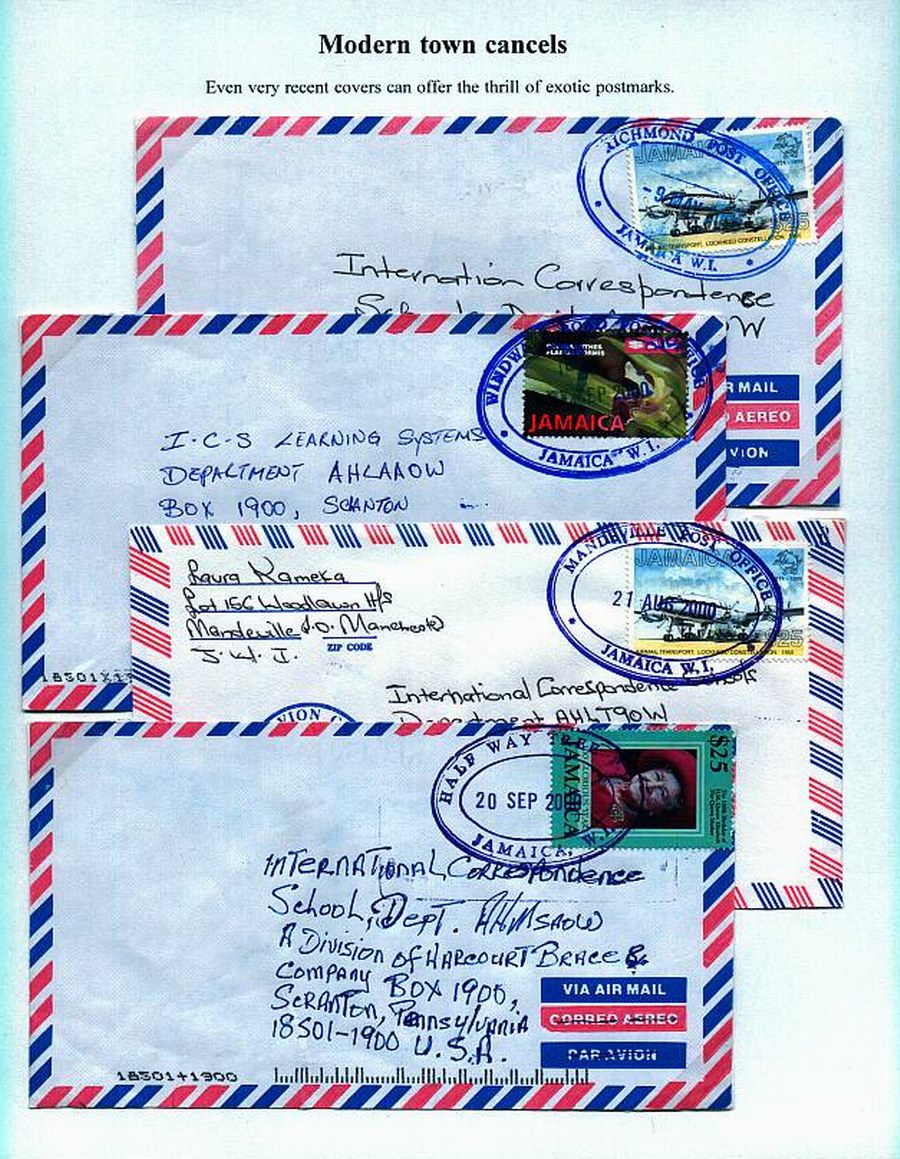 Modern town cancels
Even very recent covers can offer the thrill of exotic postmarks.
RICHMOND POST OFFICE
JAMAICA W.I.
JAMAICA
$25
AIRMAIL TRANSPORT, LOCKHEED CONSTELLATION,
Internation Correspondence
OW
R MAIL
O AEREO
VION
WINDW
SEP 2000
JAMAICA W.I.
JAMAICA
I-C-S LEARNING SYSTEMS
DEPARTMENT AHLAAOW
BOX 1900, SCANTON
18501
MANDEVILLE POST OFFICE
21 AUG 2000
JAMAICA W.I.
JAMAICA
$25
AIRMAIL TRANSPORT, LOCKHEED CONSTELLATION,
Laura Kameka
Lot 156 Woodlawn H/S
Mandeville P.O. Manchester
J.W.I.
ZIP CODE
International Correspondence Schools
Department AHLT90W
VION
HALF WAY TREE
20 SEP 20
JAMAICA, W.I.
JAMAICA
$25
INTERNATIONAL CORRESPONDENCE
SCHOOL, DEPT. AHMSAOW
A DIVISION OF HARCOURT BRACE &
COMPANY BOX 1900,
SCRANTON, PENNSYLVANIA
18501-1900 U.S.A.
VIA AIR MAIL
CORREO AEREO
PAR AVION
18501+1900